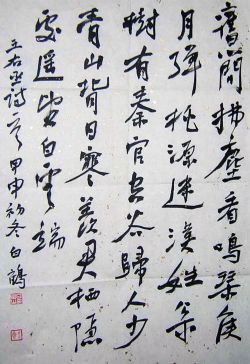 舊簡拂塵看鳴琴候
月彈桃源迷漢姓松
樹有秦官空谷歸人少
青山背日寒羨君栖隱
處遥望白雲端
王右丞詩一首甲申初冬白鶴